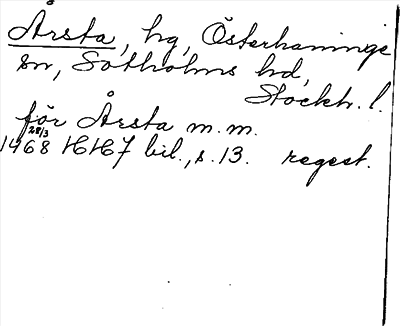 Årsta, hg, Österhaninge
sn, Sotholms hd,
Stockh. l.
för Årsta m.m.
28/3
1468 HH7 bil., s. 13. regest.